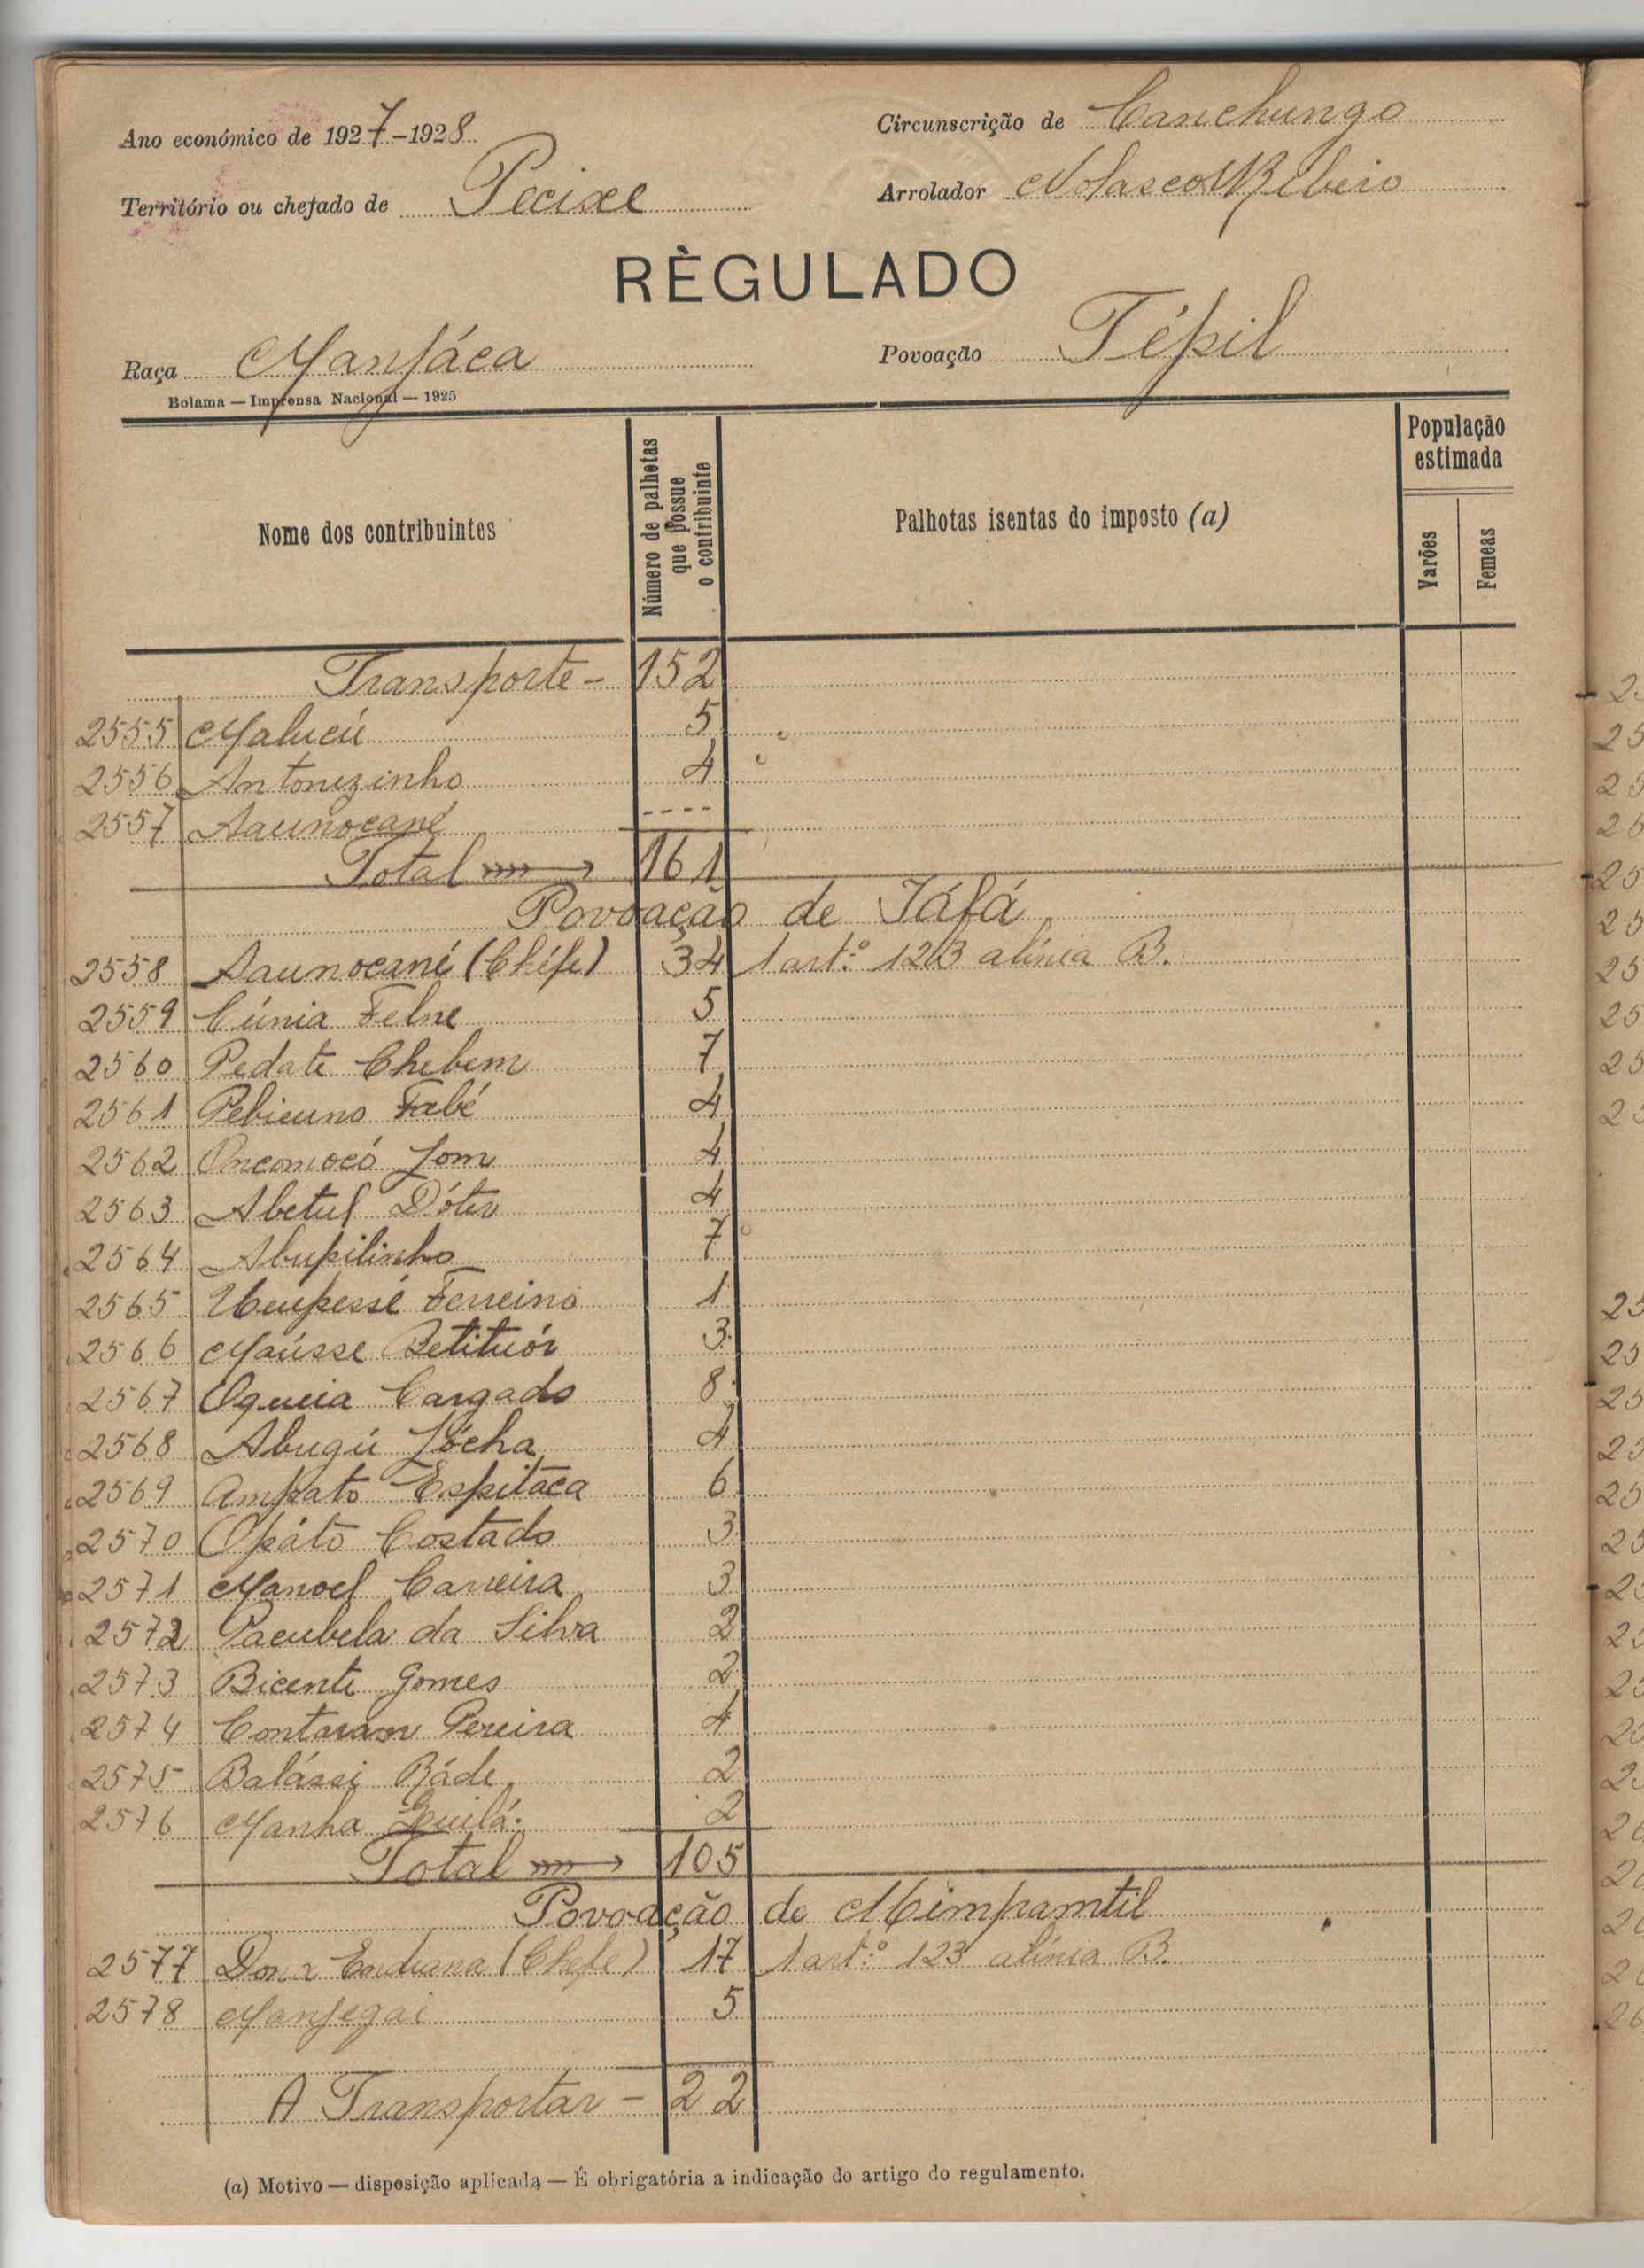 Ano económico de 1927-1928
Circunscrição de Canchungo
Território ou chefado de Pecixe
Arrolador Nolasco Ribeiro
RÈGULADO
Raça Manjáca
Povoação Tépil
Bolama — Imprensa Nacional — 1925
Nome dos contribuintes
Número de palhotas que possue o contribuinte
Palhotas isentas do imposto (a)
População estimada
Varões
Femeas
Transporte - 152
2555 Malucú 5
2556 Antonizinho 4
2557 Saunocané ----
Total 161
Povoação de Táfá
2558 Saunocané (Chéfe) 34 1 art.º 123 alínia B.
2559 Cúnia Felne 5
2560 Pedate Chebem 7
2561 Pebicuno Fabé 4
2562 Oncomocó Jom 4
2563 Abetul Dóter 4
2564 Abupilinho 7
2565 Ucupessé Ferreino 1
2566 Maússe Betituór 3
2567 Oqueia Cargado 8
2568 Abugú Jócha 4
2569 Ampato Espitaca 6
2570 Opáto Costado 3
2571 Manoel Carreira 3
2572 Pacubela da Silva 2
2573 Bicente Gomes 2
2574 Contaram Pereira 4
2575 Balássi Ráde 2
2576 Manha Guilá. 2
Total 105
Povoação de Mimpamtil
2577 Dona Enduana (Chefe) 17 1 art.º 123 alínia B.
2578 Manjegai 5
A Transportar - 22
(a) Motivo — disposição aplicada — É obrigatória a indicação do artigo do regulamento.